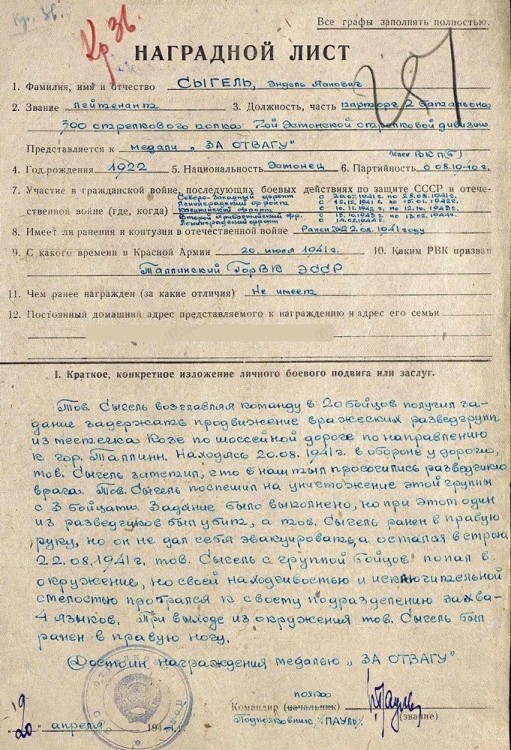 Кр. 3в.
Кр. 3в.
Все графы заполнять полностью.
НАГРАДНОЙ ЛИСТ
1. Фамилия, имя и отчество СЫГЕЛЬ, Эндель Яанович
2. Звание Лейтенант 3. Должность, часть парторг 2 батальона
300 стрелкового полка 7ой Эстонской стрелковой дивизии
Представляется к медали „ЗА ОТВАГУ"
член ВКП(б)
4. Год рождения 1922 5. Национальность Эстонец 6. Партийность
7. Участие в гражданской войне, последующих боевых действиях по защите СССР и отече-
ственной войне (где, когда)
Северо-Западный фронт
Ленинградский фронт
Калининский фронт
Второй Прибалтийский фр.
Ленинградский фронт
8. Имеет ли ранения и контузии в отечественной войне Ранен 22.08.1941 году
9. С какого времени в Красной Армии 20 июля 1941 г. 10. Каким РВК призван
Таллинский ГорВК ЭССР
11. Чем ранее награжден (за какие отличия) Не имеет
12. Постоянный домашний адрес представляемого к награждению и адрес его семьи
I. Краткое, конкретное изложение личного боевого подвига или заслуг.
Тов. Сыгель возглавляя команду в 20 бойцов получил за-
дание задержать продвижение вражеских разведгрупп
из местечка Козе по шоссейной дороге по направлению
к гор. Таллинн. Находясь 20.08.1941г. в обороне у дороги,
тов. Сыгель заметил, что в наш тыл просочились разведчики
врага. Тов. Сыгель поспешил на уничтожение этой группы
с 3 бойцами. Задание было выполнено, но при этом один
из разведчиков был убит, а тов. Сыгель ранен в правую
руку, но он не дал себя эвакуировать а остался в строю
22.08.1941г. тов. Сыгель с группой бойцов попал в
окружение, но своей находчивостью и исключительной
смелостью пробрался к своему подразделению захва-
4 языков. При выходе из окружения тов. Сыгель был
ранен в правую ногу.
Достоин награждения медалью „ЗА ОТВАГУ"
полка
Командир (начальник)
Подполковник /ПАУЛЬ/ (звание)
20 апреля 194